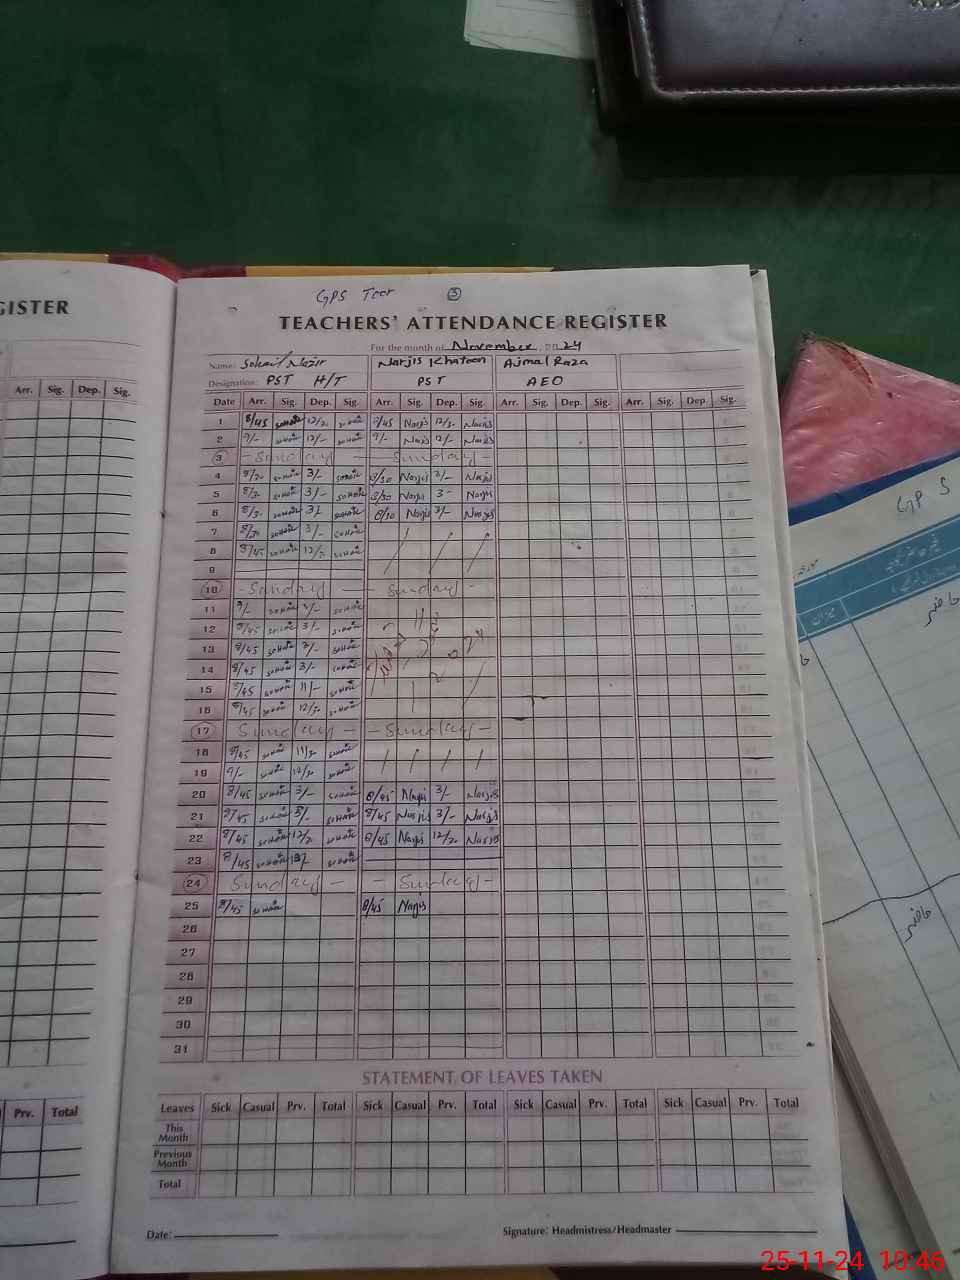 GPS Toor 3
GISTER
TEACHERS' ATTENDANCE REGISTER
For the month of November 2024
Name: Sohail Nazir Narjis Khatoon Ajmal Raza
Designation: PST H/T PST AEO
Arr. Sig. Dep. Sig.
Date Arr. Sig. Dep. Sig. Arr. Sig. Dep. Sig. Arr. Sig. Dep. Sig. Arr. Sig. Dep. Sig.
1 8/45 SOHAIL 12/30 SOHAIL 8/45 Narjis 12/30 Narjis
2 9/- SOHAIL 12/- SOHAIL 9/- Narjis 12/- Narjis
3 - Sunday - Sunday -
4 8/30 SOHAIL 3/- SOHAIL 8/30 Narjis 3/- Narjis
5 8/30 SOHAIL 3/- SOHAIL 8/30 Narjis 3- Narjis
6 8/30 SOHAIL 3/- SOHAIL 8/30 Narjis 3/- Narjis
7 8/30 SOHAIL 3/- SOHAIL
8 8/45 SOHAIL 12/30 SOHAIL
9
10 - Sunday - Sunday -
11 9/- SOHAIL 3/- SOHAIL
12 8/45 SOHAIL 3/- SOHAIL
13 8/45 SOHAIL 3/- SOHAIL
14 8/45 SOHAIL 3/- SOHAIL
15 8/45 SOHAIL 11/- SOHAIL
16 8/45 SOHAIL 12/30 SOHAIL
17 Sunday - - Sunday -
18 8/45 SOHAIL 11/30 SOHAIL
19 9/- SOHAIL 12/30 SOHAIL
20 8/45 SOHAIL 3/- SOHAIL 8/45 Narjis 3/- Narjis
21 8/45 SOHAIL 3/- SOHAIL 8/45 Narjis 3/- Narjis
22 8/45 SOHAIL 12/30 SOHAIL 8/45 Narjis 12/30 Narjis
23 8/45 SOHAIL SOHAIL
24 Sunday - - Sunday -
25 8/45 SOHAIL 8/45 Narjis
26
27
28
29
30
31
STATEMENT OF LEAVES TAKEN
Prv. Total
Leaves Sick Casual Prv. Total Sick Casual Prv. Total Sick Casual Prv. Total Sick Casual Prv. Total
This
Month
Previous
Month
Total
Date: Signature: Headmistress/Headmaster
GP S
حاضر
حاضر
25-11-24 10:46